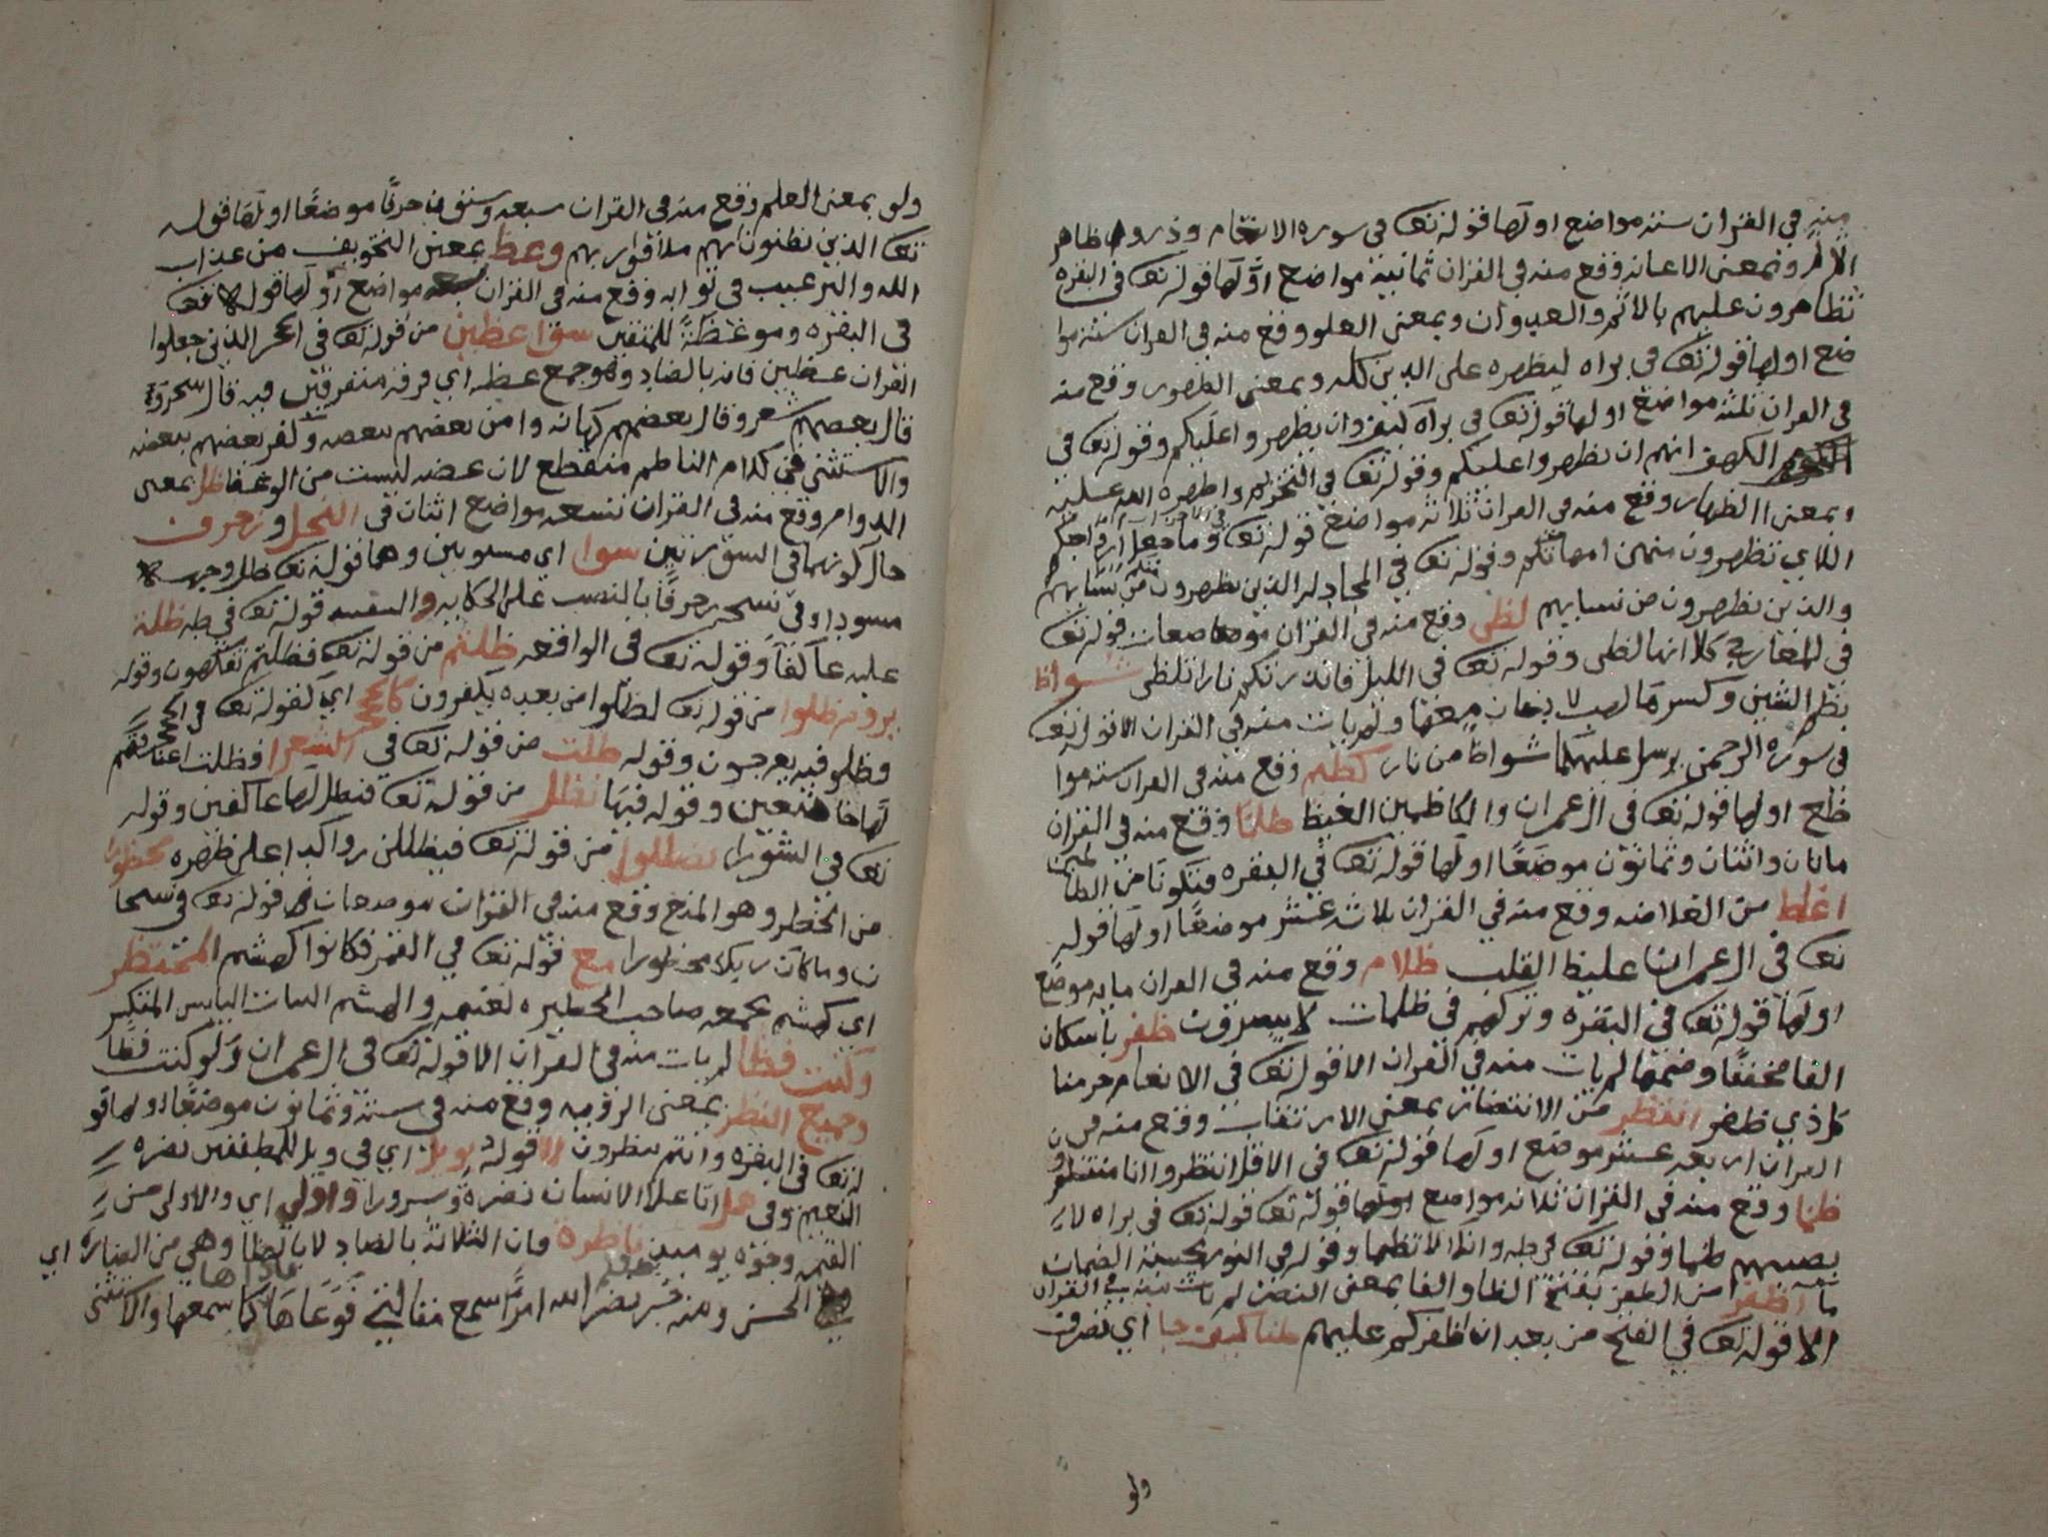 منه في القران ستة مواضع اولها قوله تعا في سورة الانعام وذروا ظاهر
الاثم وبمعنى الاعانة وقع منه في القران ثمانية مواضع اولها قوله تعا في البقرة
تظاهرون عليهم بالاثم والعدوان وبمعنى العلو وقع منه في القران ستة موا
ضع اولها قوله تعا في براه ليظهره على الدين كله وبمعنى الظهور وقع منه
في القران ثلثة مواضع اولها قوله تعا في براة كيف وان يظهروا عليكم وقوله تعا في
الكهف انهم ان يظهروا عليكم وقوله تعا في التحريم واظهره الله عليه
وبمعنى الظهار وقع منه في القران ثلاثة مواضع قوله تعا وما جعل ازواجكم
اللاي تظهرون منهن امهاتكم وقوله تعا في المجادلة الذين يظهرون منكم من نسايهم
والذين يظهرون من نسايهم لظى وقع منه في القران موضعان قوله تعا
في المعارج كلا انها لظى وقوله تعا في الليل فانذرتكم نارا تلظى شواظ
بضم الشين وكسرها لهب لا دخان معها ولم يات منه في القران الا قوله تعا
في سورة الرحمن يرسل عليكما شواظ من نار كظم وقع منه في القران ستة موا
ضع اولها قوله تعا في ال عمران والكاظمين الغيظ ظلما وقع منه في القران
ماتان واثنان وثمانون موضعا اولها قوله تعا في البقرة فتكونا من الظالمين
اغلظ من الغلاضه وقع منه في القران ثلاثة عشر موضعا اولها قوله
تعا في ال عمران غليظ القلب ظلام وقع منه في القران ماية موضع
اولها قوله تعا في البقرة وتركهم في ظلمات لا يبصرون ظفر باسكان
الفا مخففا وضمها لم يات منه في القران الا قوله تعا في الانعام حرمنا
كل ذي ظفر انتظر من الانتضار بمعنى الارتقاب وقع منه في
القران اربعة عشر موضع اولها قوله تعا في الانعام قل انتظروا انا منتظرون
ظما وقع منه في القران ثلاثة مواضع قوله تعا في براه لا
يصيبهم ظما وقوله تعا في طه وانك لا تظما وقوله في النور يحسبه الظمان
ما اظفر من الظفر بفتح الظا والفا بمعنى النصر لم يات منه في القران
الا قوله تعا في الفتح من بعد ان اظفركم عليهم ظنا كيف جا اي تصرف
ولو
ولو بمعنى العلم وقع منه في القران سبعه وستون حرفا موضعا اولها قوله
تعا الذين يظنون انهم ملاقوا ربهم وعظ بمعنى التخويف من عذاب
الله والترغيب في ثوابه وقع منه في القران مواضع اولها قوله تعا
في البقره وموعظة للمتقين سوى عظين من قوله تعا في الحجر الذين جعلوا
القران عظين فانه بالضاد وهو جمع عظه اي فرقه متفرقين فيه قال سحر و
قال بعضهم شعر وقال بعضهم كهانه وامن بعضهم ببعضه وكفر بعضهم ببعضه
والاستثنى في كلام الناظم منقطع لان عضه ليست من الوعظ ظل بمعنى
الدوام وقع منه في القران تسعه مواضع اثنان في النحل وزخرف
حال كونهما في السورتين سوا اي مستويين وهما قوله تعا ظل وجهه
مسودا وفي نسخه زخرفا بالنصب على الحكايه قوله تعا في طه ظلت
عليه عاكفا وقوله تعا في الواقعه ظلتم من قوله تعا فظلتم تفكهون وقوله
بروم ظلوا من قوله تعا لظلوا من بعده يكفرون كالحجر اي كقوله تعا في الحجر
فظلوا فيه يعرجون وقوله ظلت من قوله تعا في الشعرا فظلت اعناقهم
لها خاضعين وقوله فيها نظل من قوله تعا فنظل لها عاكفين وقوله
تعا في الشورى يظللن من قوله تعا فيظللن رواكد اعلى ظهره محظورا
من الحظر وهو المنع وقع منه في القران موضعان قوله تعا في سبحا
ن وما كان عطا ربك محظورا مع قوله تعا في القمر فكانوا كهشيم المحتظر
اي كهشيم يجمعه صاحب الحظيره لغنمه والهشيم النبات اليابس المتكسر
وكنت فظا لم يات منه في القران الا قوله تعا في ال عمران ولو كنت فظا
وجميع النظر بمعنى الرؤيه وقع منه في ستة وثمانون موضعا اولها قو
له تعا في البقره وانتم تنظرون الا قوله بويل اي في ويل للمطففين نضره
النعيم وفي هل اتا على الانسان نضرة وسرورا واولى اي والاولى من
القيمه وجوه يوميذ ناظرة فان الثلاثة بالضاد لا بالظا وهي من النضارة اي
الحسن ومنه خبر نضر الله امرا سمع مقالتي فوعاها فاداها كما سمعها والاستثنى